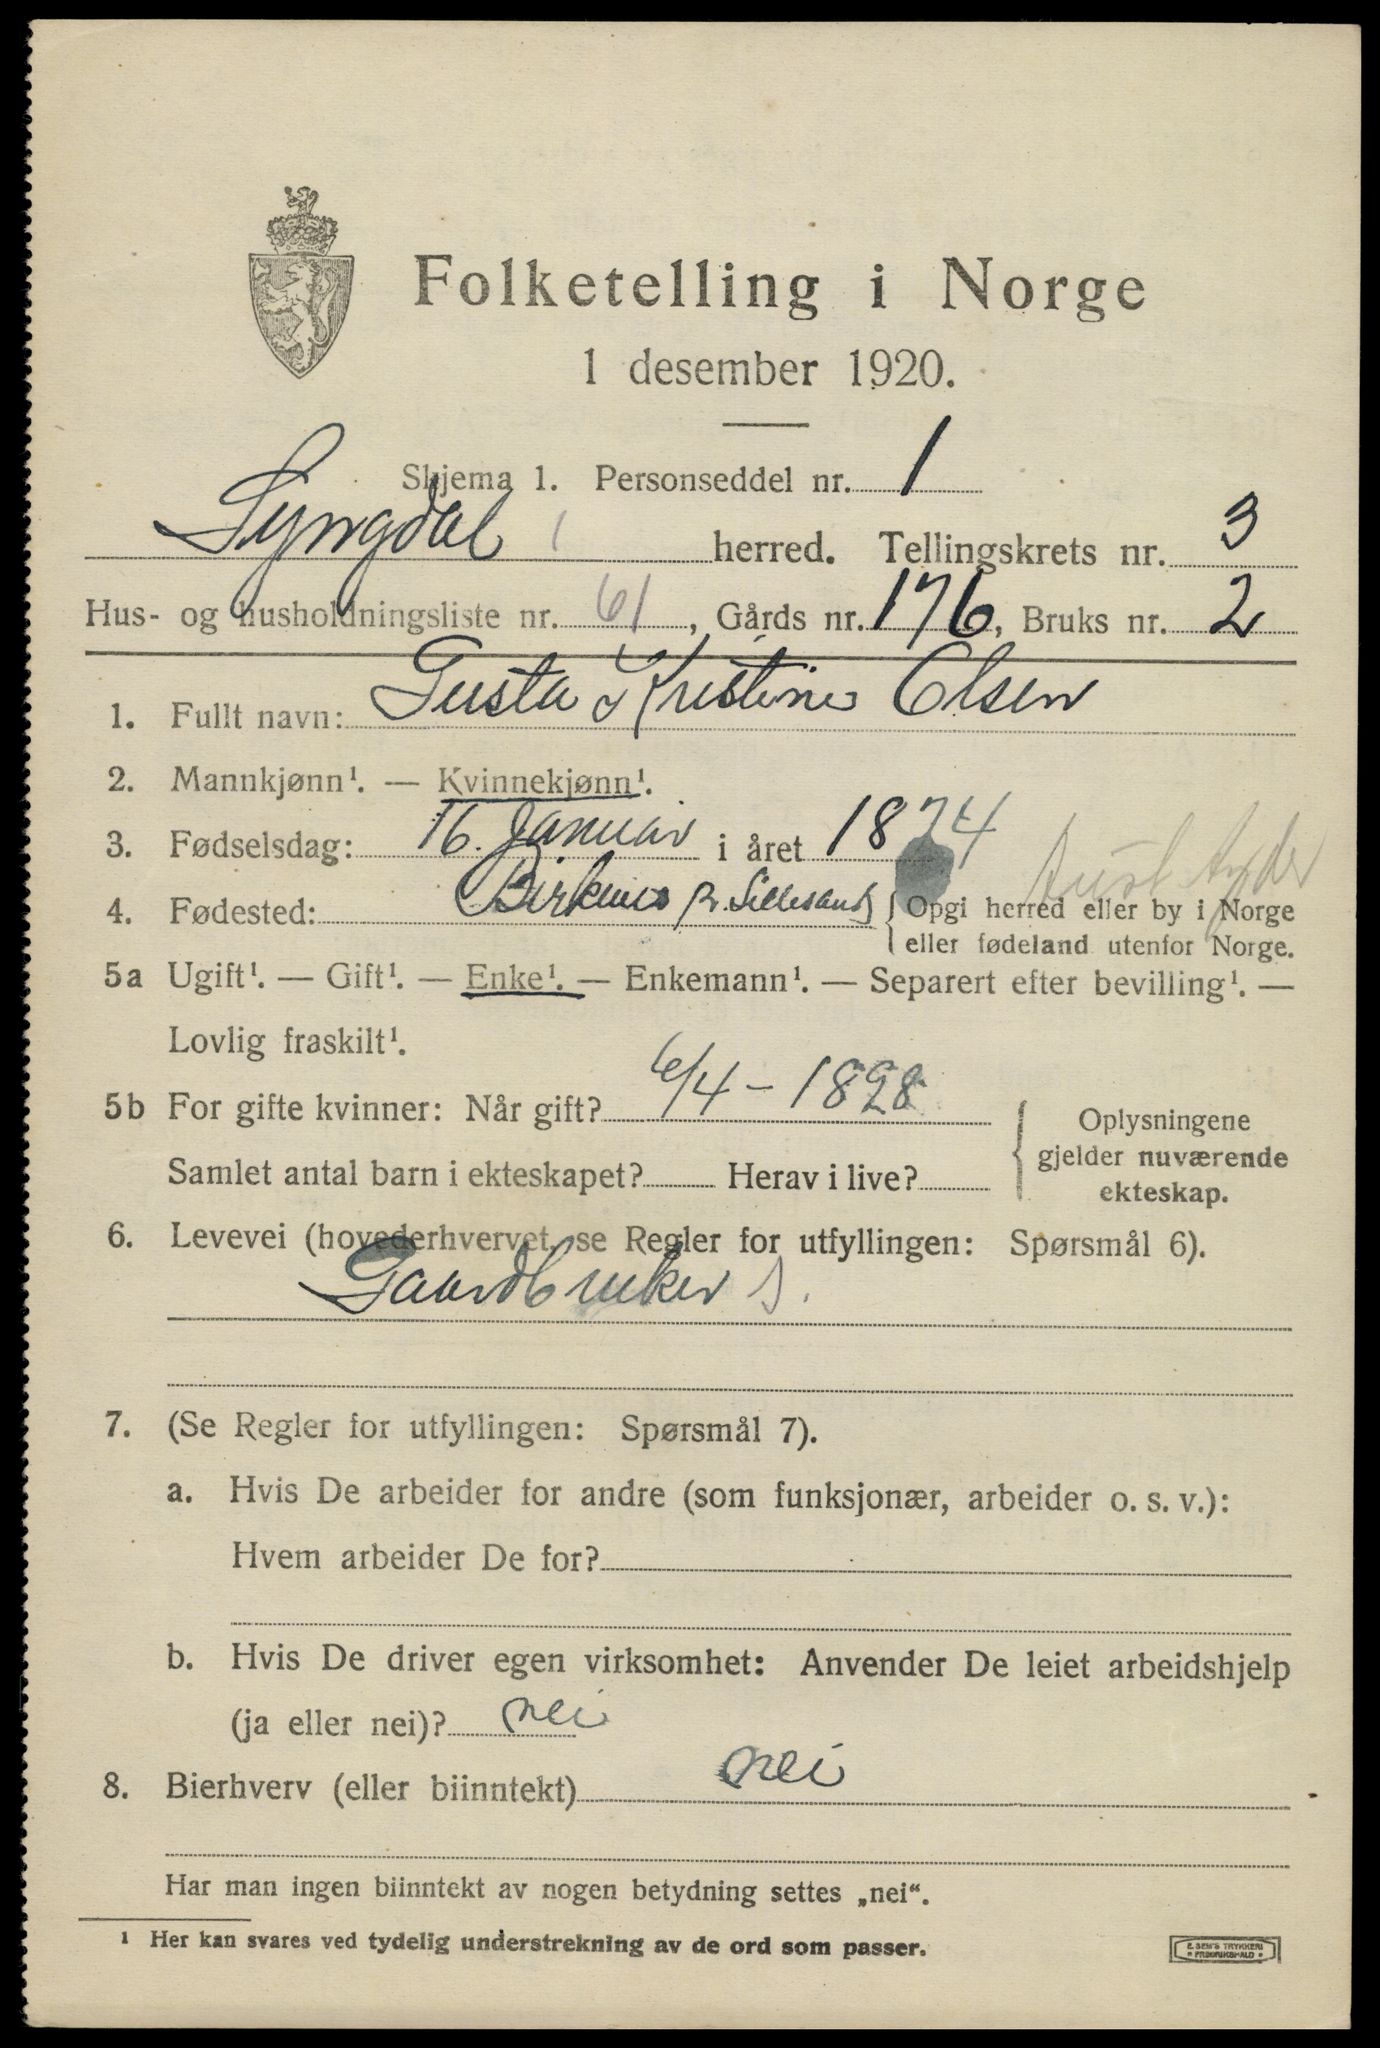 Folketelling i Norge
1 desember 1920.
Skjema 1. Personseddel nr. 1
Lyngdal herred. Tellingskrets nr. 3
Hus- og husholdningsliste nr. 61, Gårds nr. 176, Bruks nr. 2
1. Fullt navn: Gusta Kristine Olsen
2. Mannkjønn¹. — Kvinnekjønn¹.
3. Fødselsdag: 16. Januar i året 1874
Aust Agder
4. Fødested: Birkenes pr. Lillesand { Opgi herred eller by i Norge
eller fødeland utenfor Norge.
5a Ugift¹. — Gift¹. — Enke¹. — Enkemann¹. — Separert efter bevilling¹. —
Lovlig fraskilt¹.
5b For gifte kvinner: Når gift? 6/4 - 1898
Samlet antal barn i ekteskapet? Herav i live?
{ Oplysningene
gjelder nuværende
ekteskap.
6. Levevei (hovederhvervet, se Regler for utfyllingen: Spørsmål 6).
Gaardbruker S.
7. (Se Regler for utfyllingen: Spørsmål 7).
a. Hvis De arbeider for andre (som funksjonær, arbeider o. s. v.):
Hvem arbeider De for?
b. Hvis De driver egen virksomhet: Anvender De leiet arbeidshjelp
(ja eller nei)? nei
8. Bierhverv (eller biinntekt) nei
Har man ingen biinntekt av nogen betydning settes „nei“.
¹ Her kan svares ved tydelig understrekning av de ord som passer.
E. SEM'S TRYKKERI
• FREDRIKSHALD •